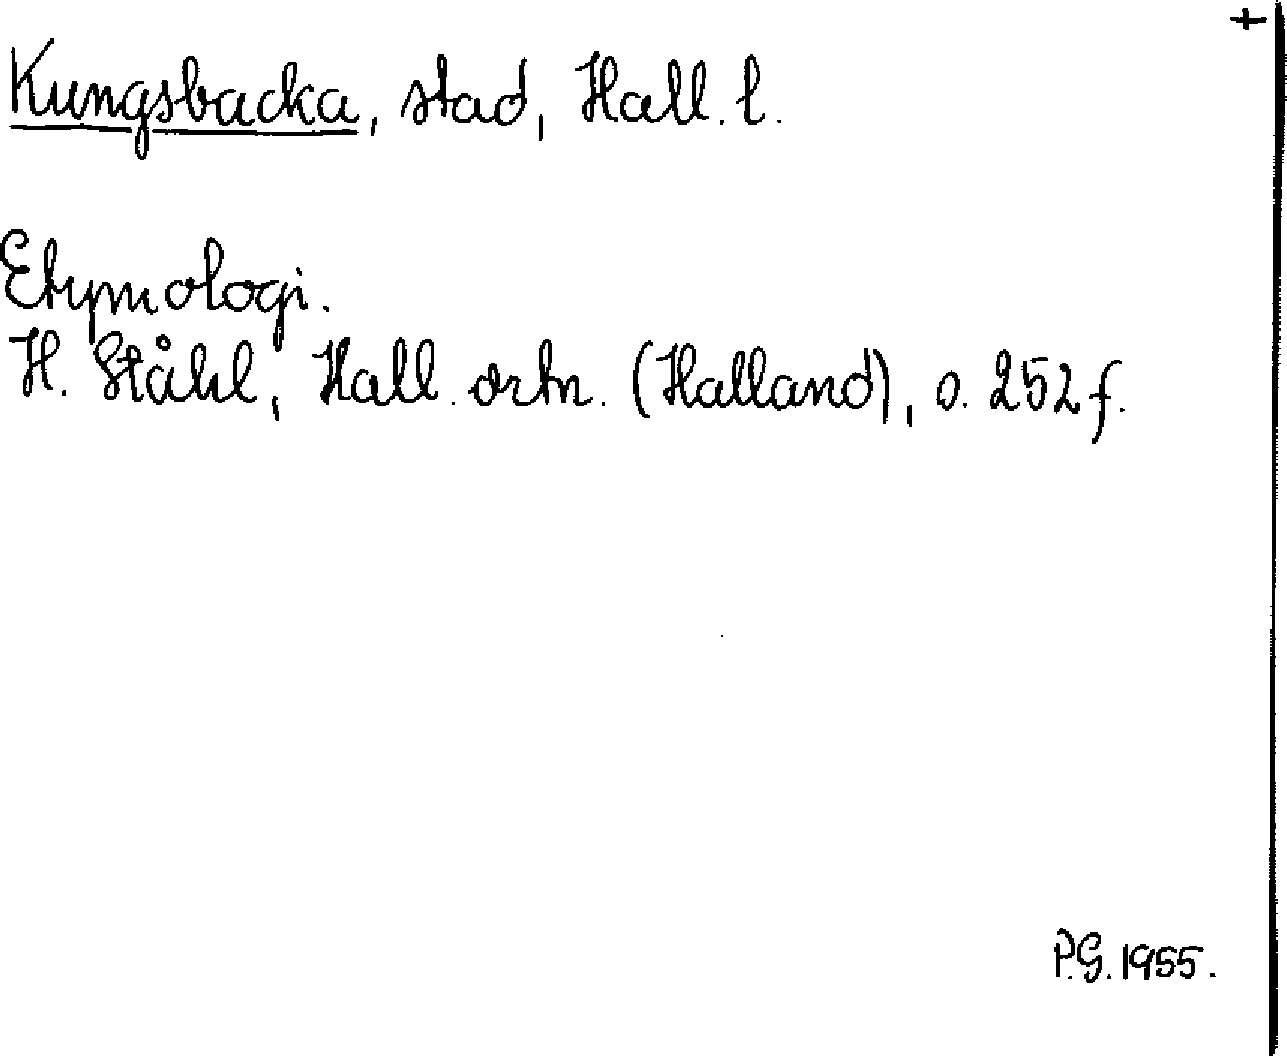 +
Kungsbacka, stad, Hall. l.
Etymologi.
H. Ståhl, Hall. ortn. (Halland), s. 252 f.
P.G. 1955.